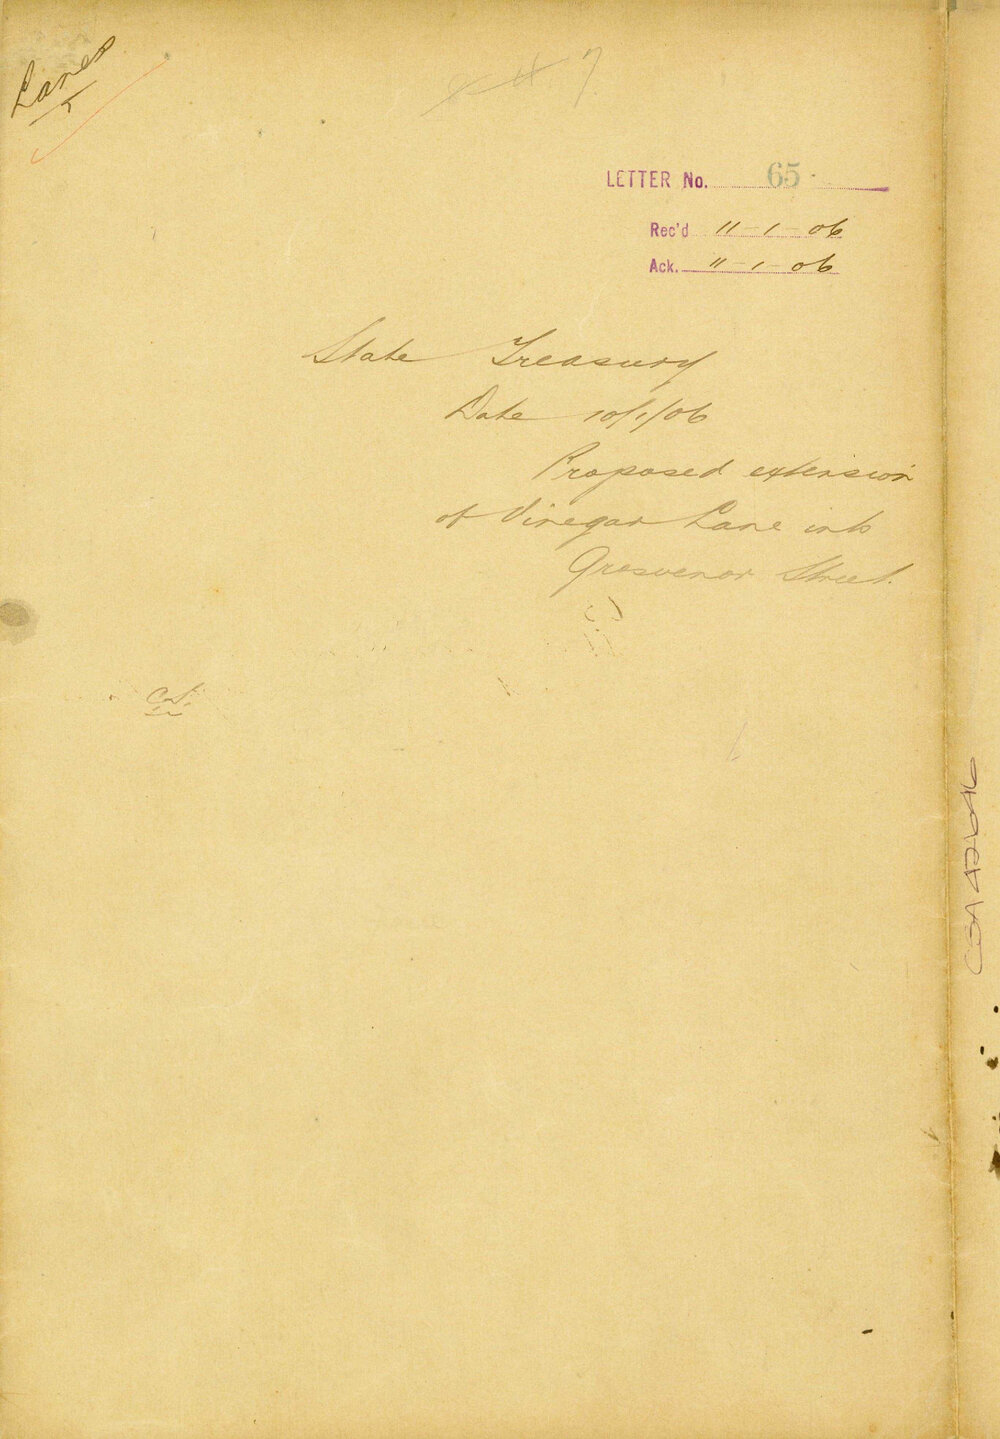 Lanes
7
LETTER No. 65
Rec'd 11-1-06
Ack. 11-1-06
State Treasury
Date 10/1/06
Proposed extension
of Vinegar Lane into
Grosvenor Street.
COA 42646